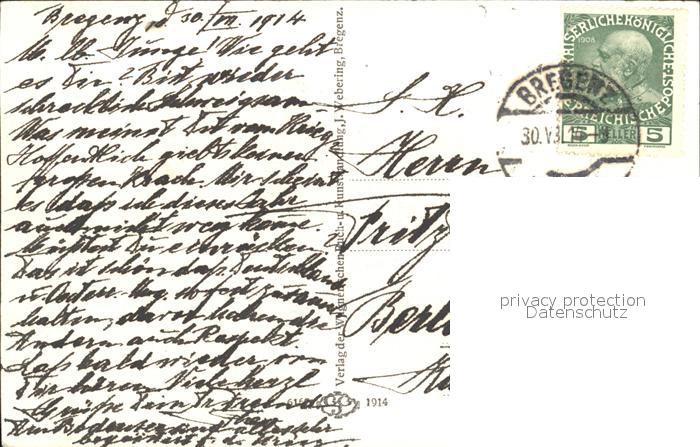 Bregenz d 30./VII. 1914
M. lb. Junge! Wie geht
es Dir? Bist wieder
schrecklich schweigsam
Was meinst Du vom Krieg
Hoffentlich giebts keinen
großen Krach. Mir scheint
es daß ich dieses Jahr
auch nicht weg kome.
Müßtest Du einrücken
Das ist schön daß Deutschland
u. Österr. Ung. so fest zusam
halten, davor haben die
Andern auch Respekt.
Laß bald wieder von
Dir hören. Viele herzl.
Grüße Dein
Am Bodensee
begeistert f. d.
Verlag der Wagner'schen Buch- u. Kunsthandlung, J. Webering, Bregenz.
1914
S. H.
Herrn
Fritz
Berl
KAISERLICHE KÖNIGLICHE
ÖSTERREICHISCHE POST
1908
5 HELLER 5
BREGENZ
30.VII.
privacy protection
Datenschutz